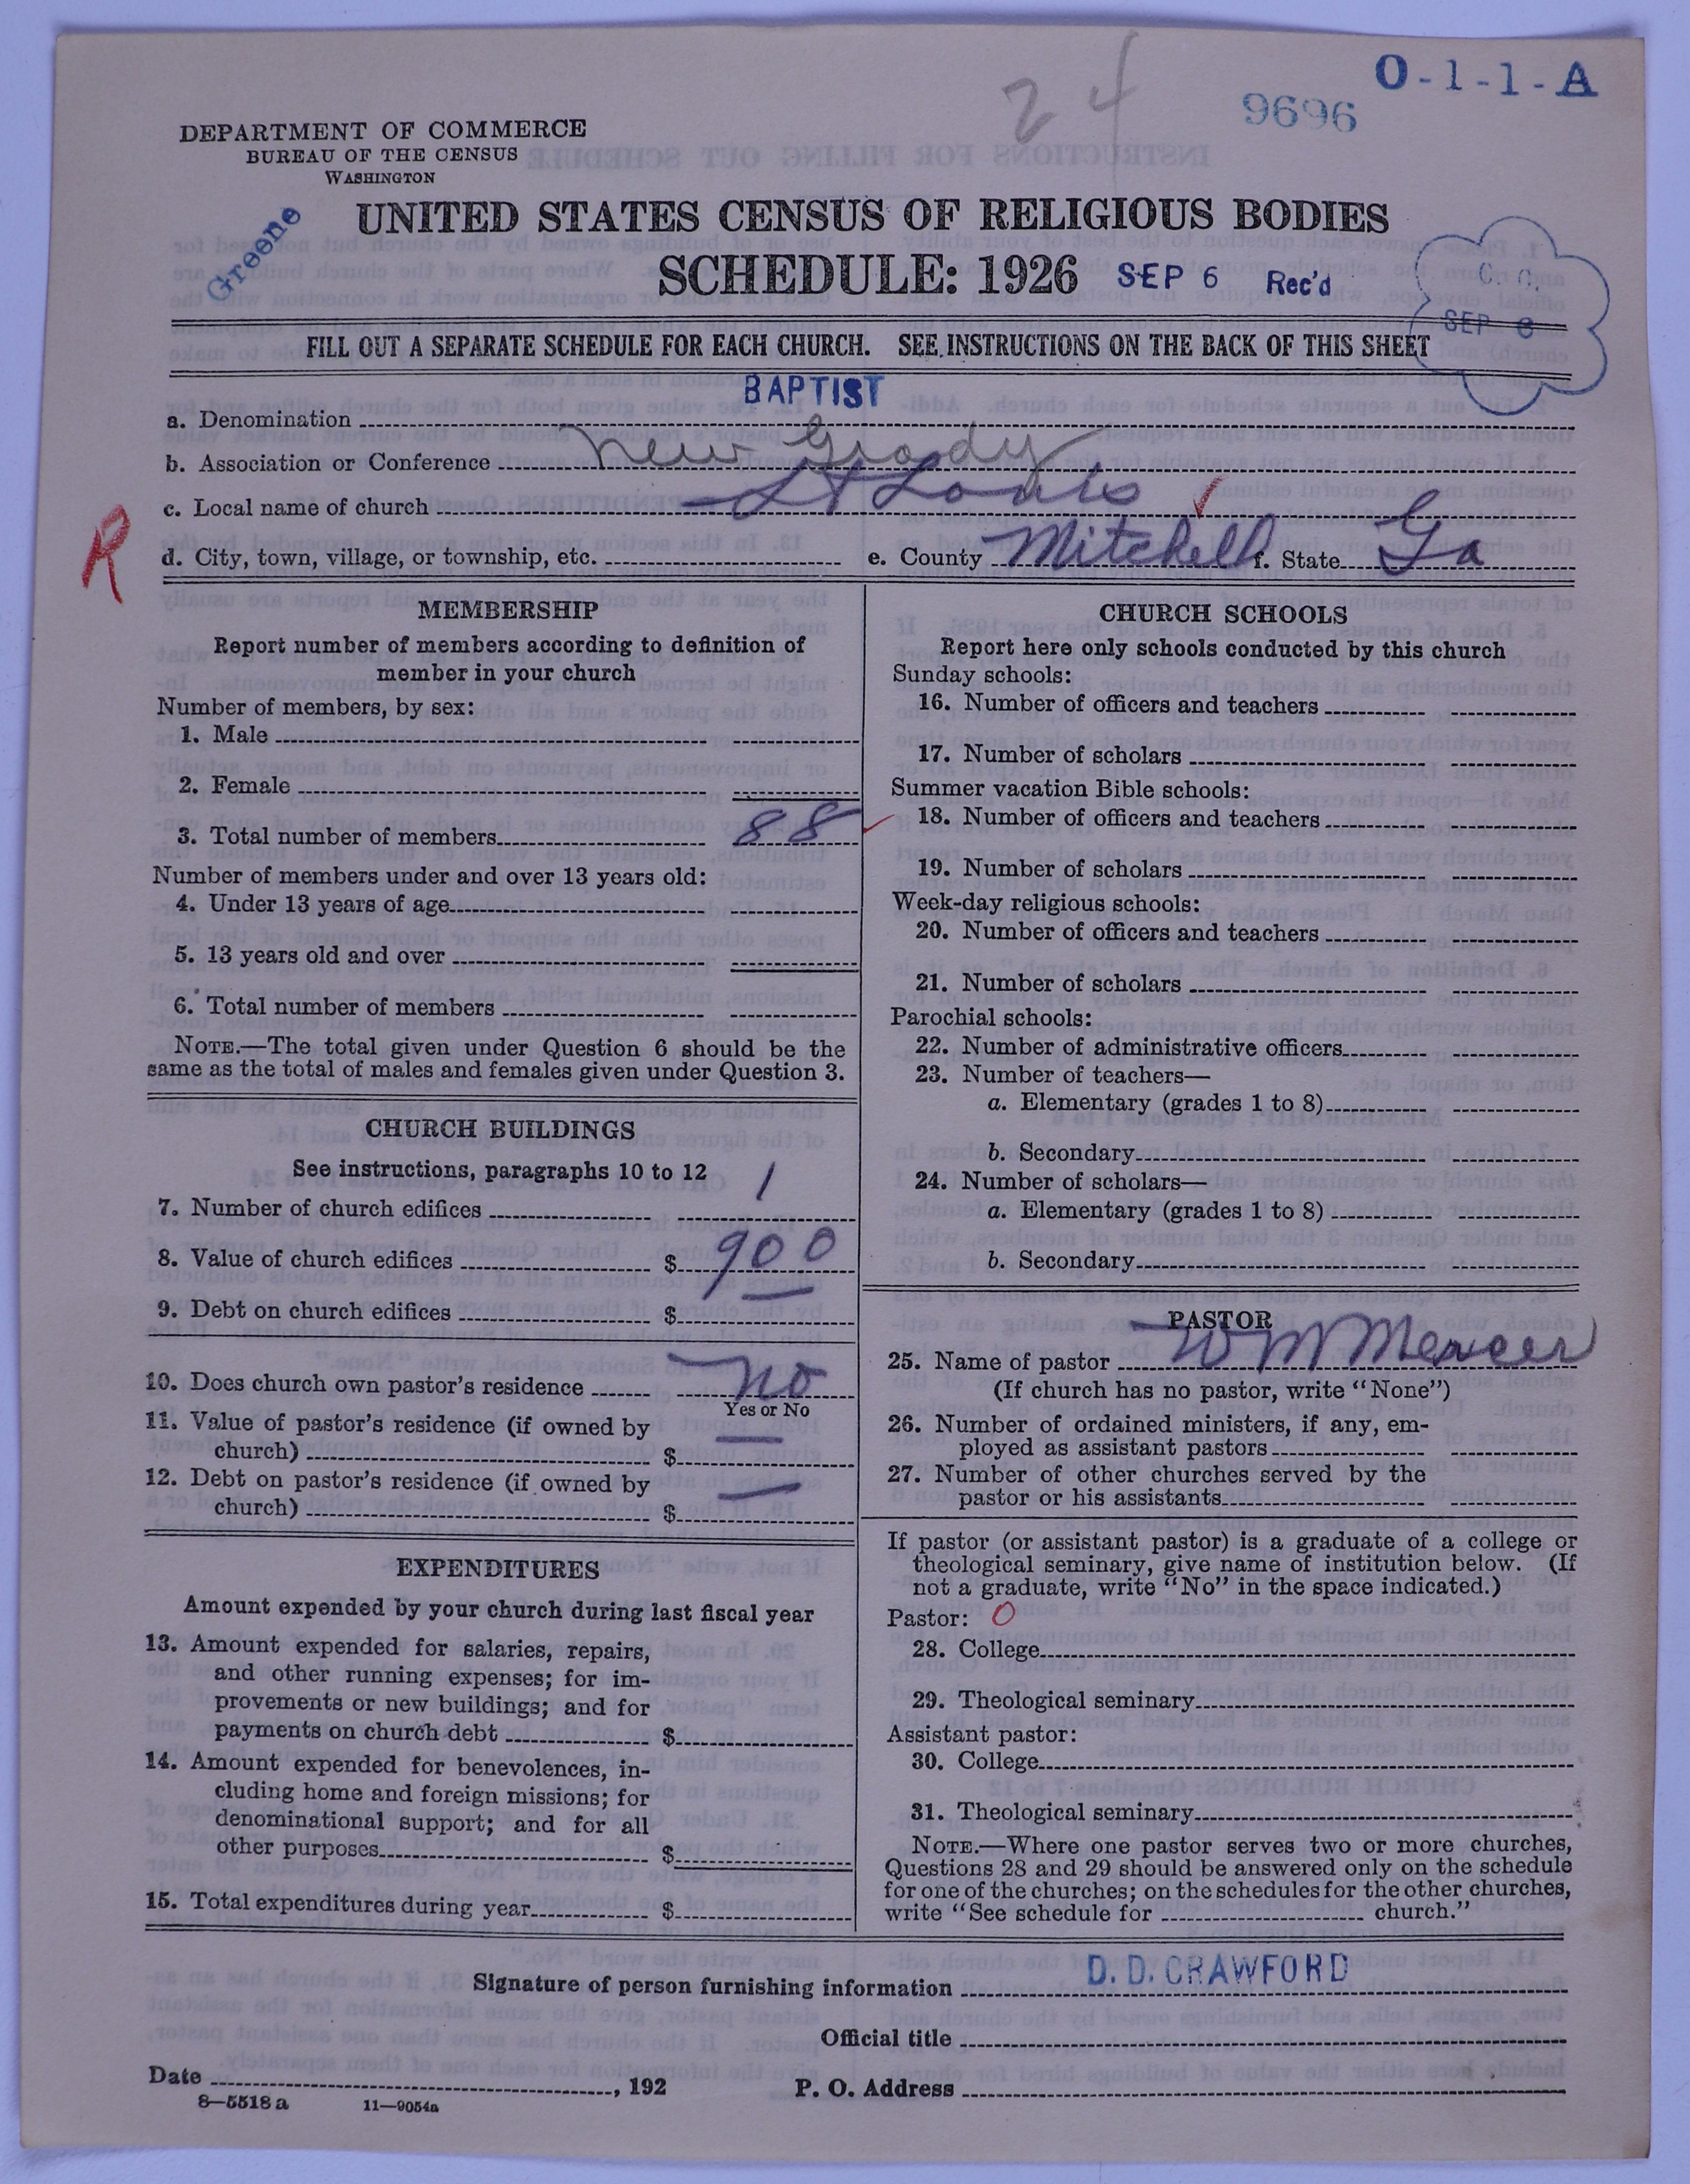 24
9696
O-1-1-A
DEPARTMENT OF COMMERCE
BUREAU OF THE CENSUS
WASHINGTON
Greene
UNITED STATES CENSUS OF RELIGIOUS BODIES
SCHEDULE: 1926 SEP 6 Rec'd
C. O.
SEP 6
FILL OUT A SEPARATE SCHEDULE FOR EACH CHURCH. SEE INSTRUCTIONS ON THE BACK OF THIS SHEET
a. Denomination BAPTIST
b. Association or Conference New Grady
c. Local name of church St Louis
R
d. City, town, village, or township, etc. e. County Mitchell f. State Ga
MEMBERSHIP
Report number of members according to definition of
member in your church
Number of members, by sex:
1. Male
2. Female
3. Total number of members 88
Number of members under and over 13 years old:
4. Under 13 years of age
5. 13 years old and over
6. Total number of members
NOTE.—The total given under Question 6 should be the
same as the total of males and females given under Question 3.
CHURCH BUILDINGS
See instructions, paragraphs 10 to 12
7. Number of church edifices 1
8. Value of church edifices $ 900
9. Debt on church edifices $ —
10. Does church own pastor's residence no
Yes or No
11. Value of pastor's residence (if owned by
church) $ —
12. Debt on pastor's residence (if owned by
church) $ —
EXPENDITURES
Amount expended by your church during last fiscal year
13. Amount expended for salaries, repairs,
and other running expenses; for im-
provements or new buildings; and for
payments on church debt $
14. Amount expended for benevolences, in-
cluding home and foreign missions; for
denominational support; and for all
other purposes $
15. Total expenditures during year $
CHURCH SCHOOLS
Report here only schools conducted by this church
Sunday schools:
16. Number of officers and teachers
17. Number of scholars
Summer vacation Bible schools:
18. Number of officers and teachers
19. Number of scholars
Week-day religious schools:
20. Number of officers and teachers
21. Number of scholars
Parochial schools:
22. Number of administrative officers
23. Number of teachers—
a. Elementary (grades 1 to 8)
b. Secondary
24. Number of scholars—
a. Elementary (grades 1 to 8)
b. Secondary
PASTOR
25. Name of pastor W M Mercer
(If church has no pastor, write "None")
26. Number of ordained ministers, if any, em-
ployed as assistant pastors
27. Number of other churches served by the
pastor or his assistants
If pastor (or assistant pastor) is a graduate of a college or
theological seminary, give name of institution below. (If
not a graduate, write "No" in the space indicated.)
Pastor: O
28. College
29. Theological seminary
Assistant pastor:
30. College
31. Theological seminary
NOTE.—Where one pastor serves two or more churches,
Questions 28 and 29 should be answered only on the schedule
for one of the churches; on the schedules for the other churches,
write "See schedule for church."
Signature of person furnishing information D. D. CRAWFORD
Official title
Date , 192 P. O. Address
8—5518 a 11—9054a